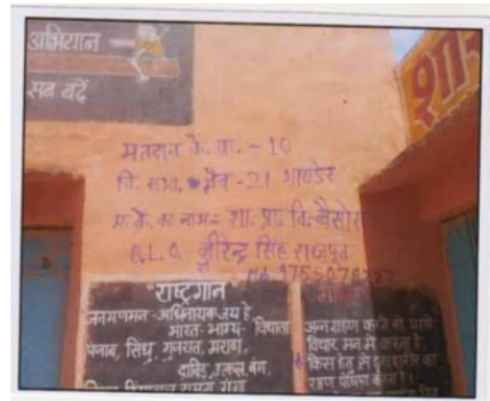 अभियान
सब बढ़ें
शा
मतदान के. क्र. - 10
वि. सभा. क्षेत्र - 21 भाण्डेर
म. के. का नाम - शा. प्रा. वि. बैसोरा
B.L.O. - वीरेन्द्र सिंह राजपूत
"राष्ट्रगान"
जनगणमन-अधिनायक जय हे,
भारत-भाग्य-विधाता
पंजाब, सिंधु, गुजरात, मराठा,
द्राविड़, उत्कल, बंग,
अन्न ग्रहण करने से पहले
विचार मन में करना है।
किस हेतु से इस शरीर का
रक्षण पोषण करना है।